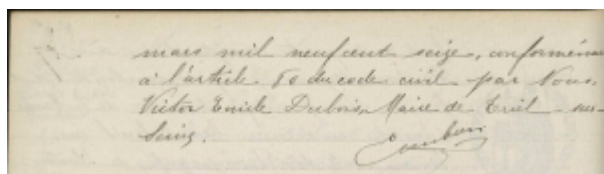 mars mil neuf cent seize, conformémen
à l'article 80 du code civil par Nous,
Victor Emile Dubois, Maire de Triel-sur-
Seine.